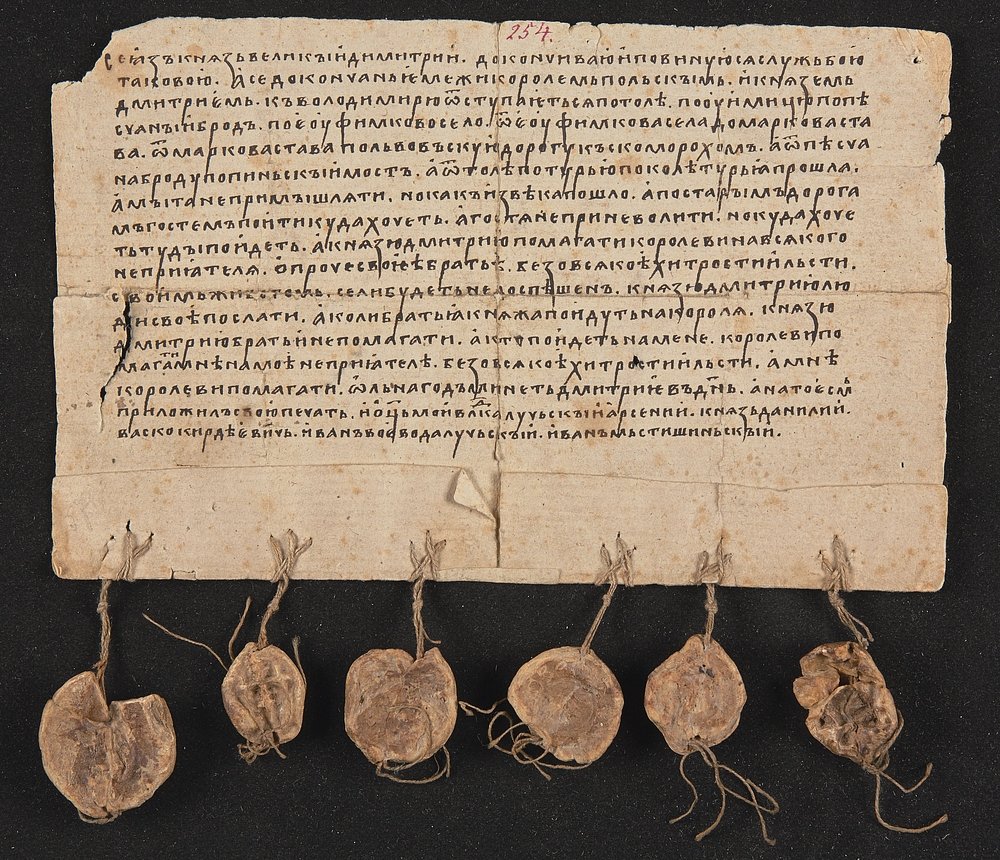 254.
сеꙗзъкнѧзьвеликыйдимитрии. докончиваюйповинуюсѧслужьбою
таковою. аседокончаньемежикоролемьпольскъımь. икнѧземь
дмитриемь. къволодимирюѿступаєтьсѧпотолѣ. поѹимичюпопѣ
счаныйбродъ. поеѹфимковосело. ѿеѹфимковаселадомарковаста
ва. ѿмарковаставапольвовьскуидорогукъскоморохомъ. аѿпѣсча
набродупопиньскыймостъ. аѿтолѣпотурьюпоколѣтурьꙗпрошла.
амытанепримышлѧти. нокакъизвѣкапошло. апостарымъдорога
мъгостемъпойтикудахочеть. агостѧнеприневолити. нокудахоче
тьтудыпойдеть. акнѧзюдмитриюпомагатикоролевинавсѧкого
неприꙗтелѧ. опрочесвоеѣбратьѣ. безовсѧкоѣхитростиильсти.
своимьживотомь. селибудетьнедоспѣшенъ. кнѧзюдмитриюлю
дисвоѣпослати. аколибратьꙗкнѧжапойдутьнакоролѧ. кнѧзю
дмитриюбратьинепомагати. актопойдетьнамене. королевипо
магатимнѣнамоѣнеприꙗтелѣ. безовсѧкоѣхитростиильсти. амнѣ
королевипомагати. ѿльнагодъминетьдмитриевъднь. анатоесмь
приложилъсвоюпечать. иоцьмойвлдкалучьскыйарсении. кнѧзьданилии.
васкокирдѣевичь. иванъвоеводалучьскый. иванъмьстишиньскыи.